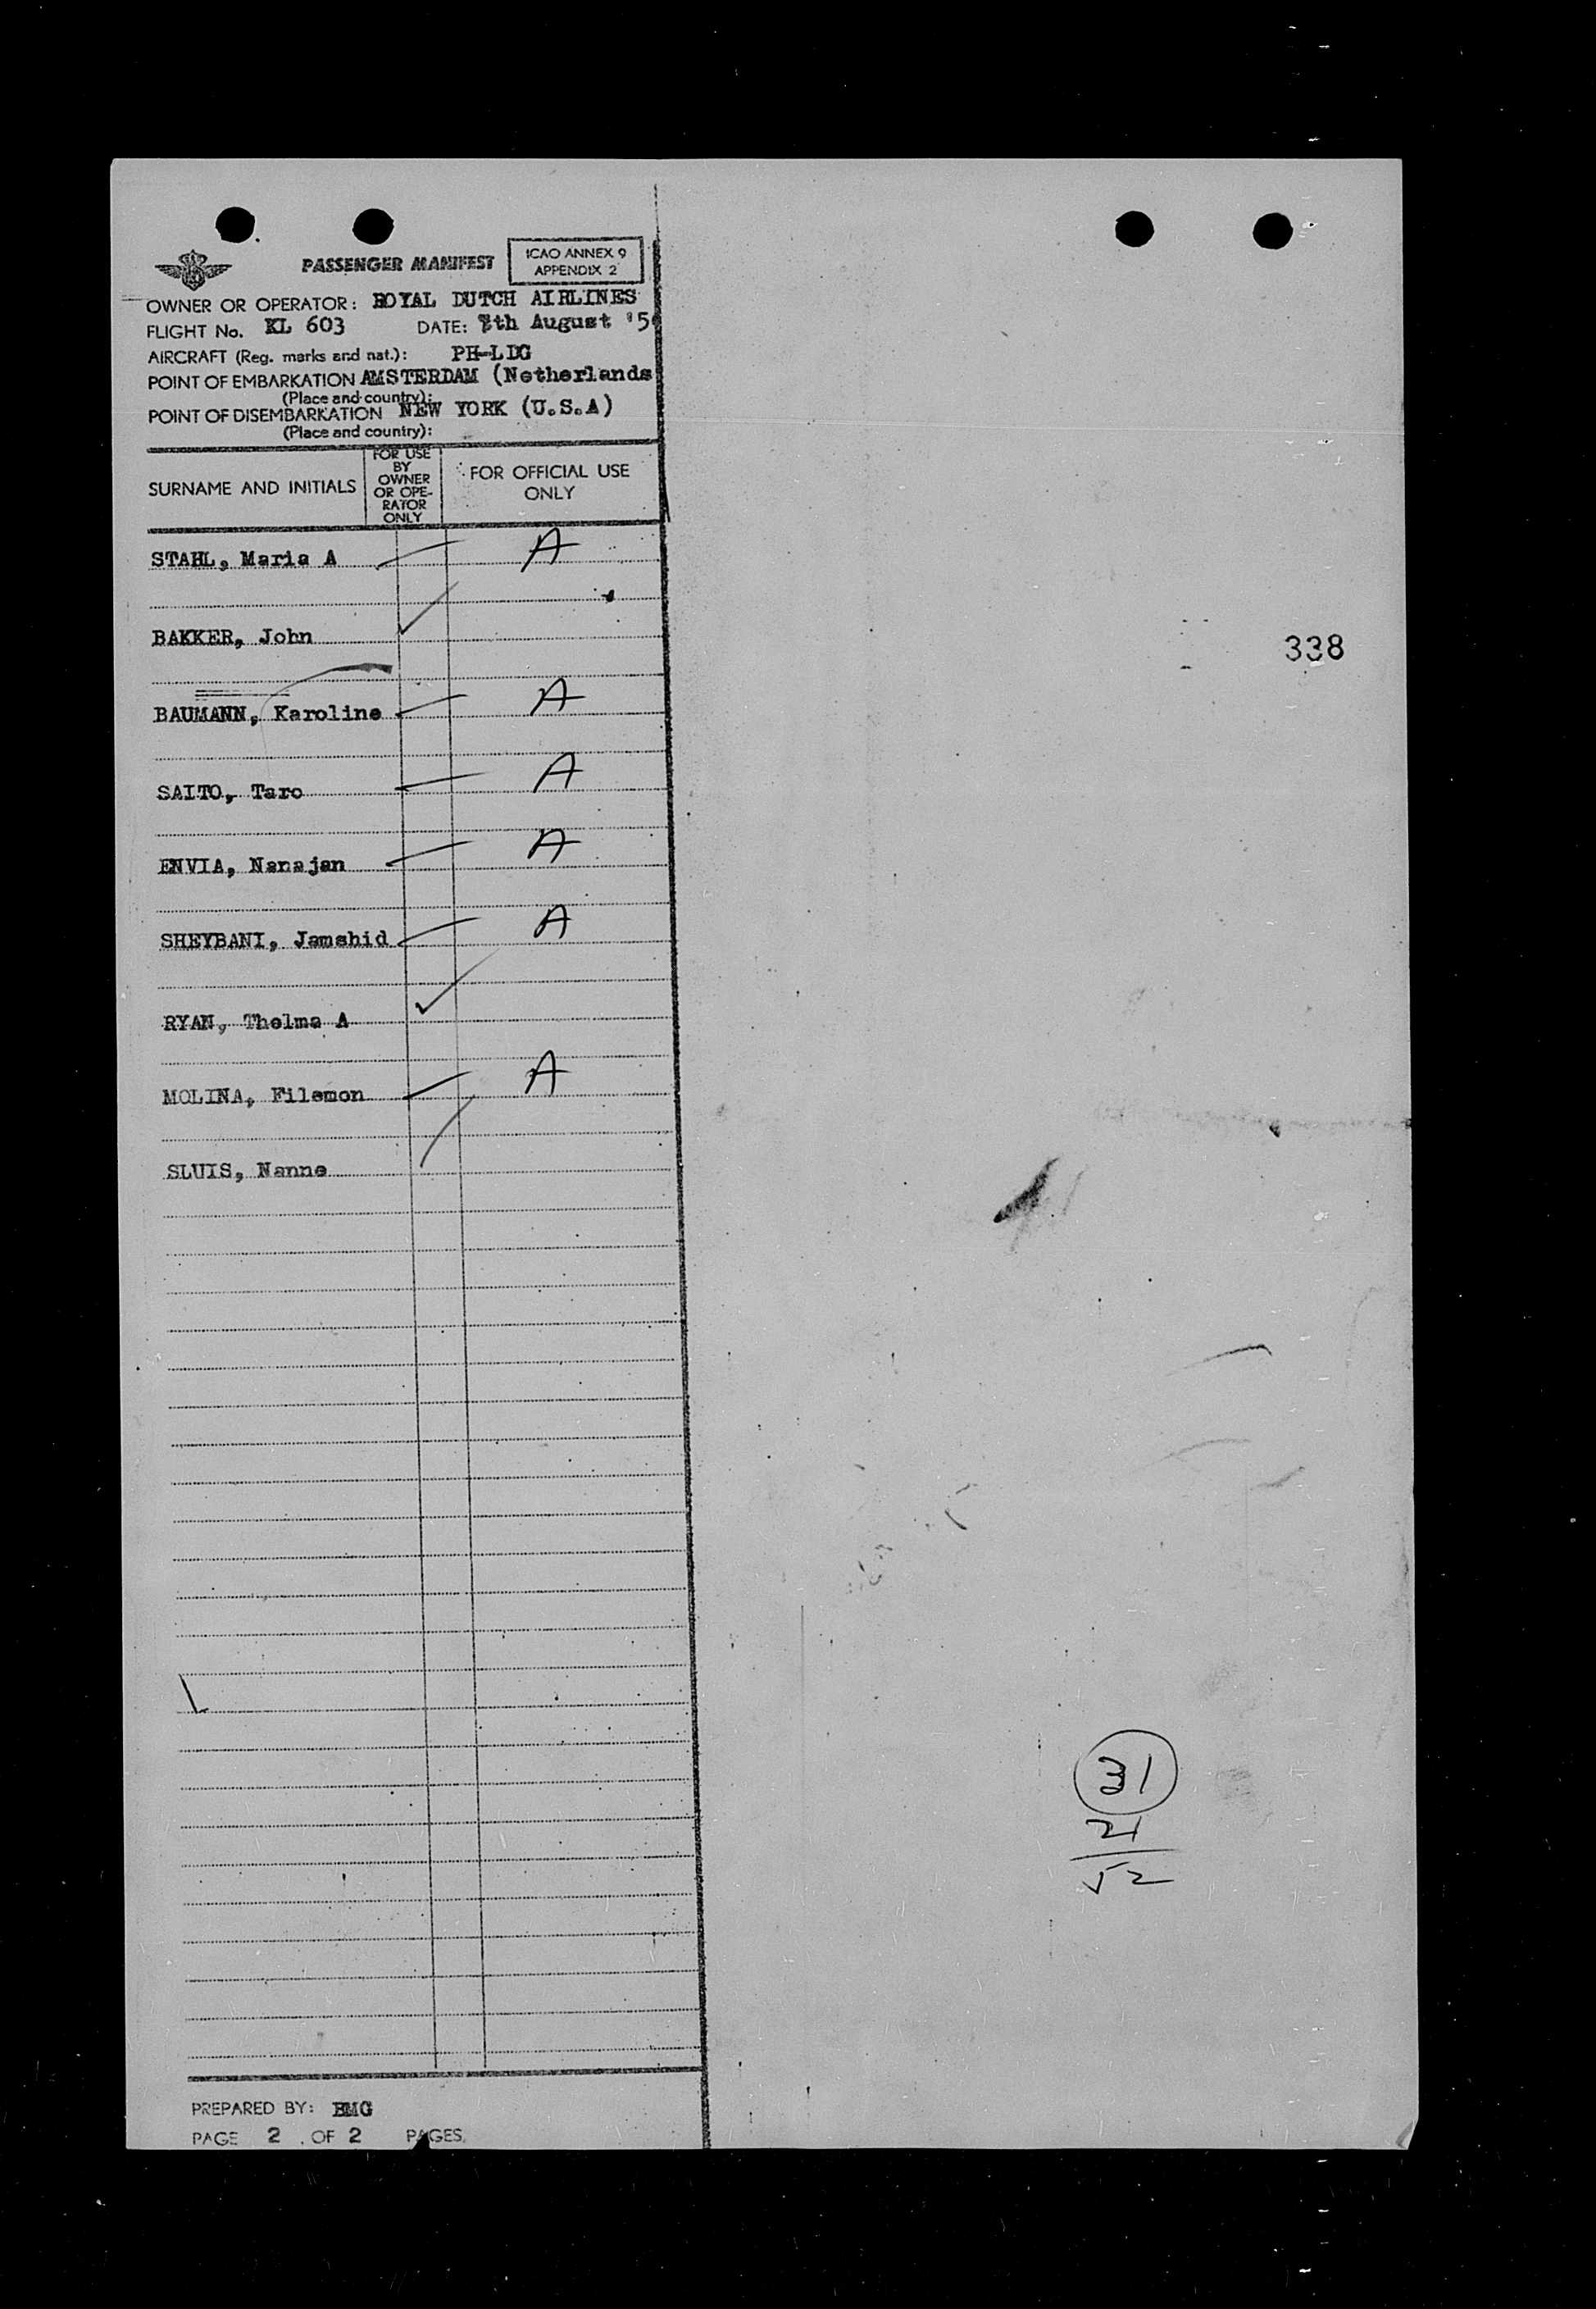 PASSENGER MANIFEST
ICAO ANNEX 9
APPENDIX 2
OWNER OR OPERATOR: ROYAL DUTCH AIRLINES
FLIGHT No. KL 603 DATE: 8th August '5
AIRCRAFT (Reg. marks and nat.): PH-LDG
POINT OF EMBARKATION AMSTERDAM (Netherlands
(Place and country):
POINT OF DISEMBARKATION NEW YORK (U.S.A)
(Place and country):
SURNAME AND INITIALS
FOR USE
BY
OWNER
OR OPE-
RATOR
ONLY
FOR OFFICIAL USE
ONLY
STAHL, Maria A A
BAKKER, John
BAUMANN, Karoline A
SAITO, Taro A
ENVIA, Nanajan A
SHEYBANI, Jamshid A
RYAN, Thelma A
MOLINA, Filemon A
SLUIS, Nanne
338
31
21
52
PREPARED BY: BMG
PAGE 2 OF 2 PAGES